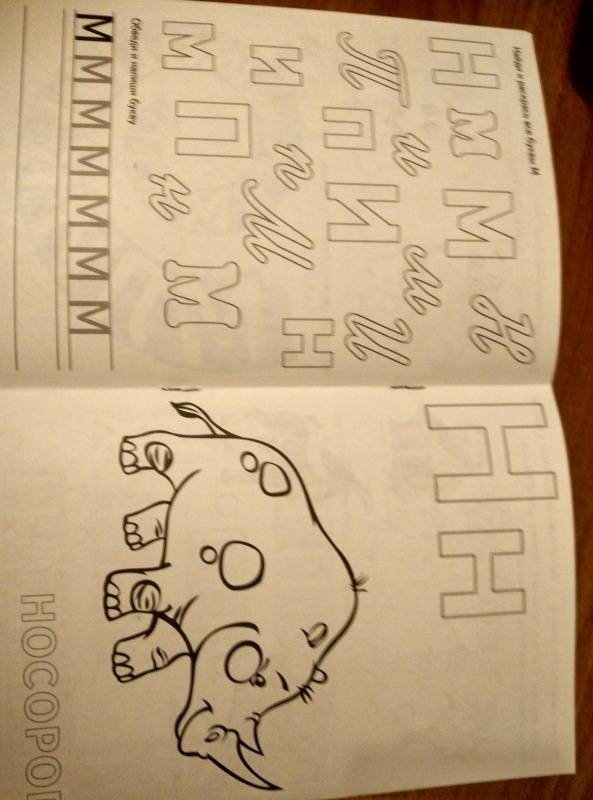 Найди и раскрась все буквы М
Н м М Н
П и м
п И И
и п М Н
М П н М
Обведи и напиши букву
М М М М М М М М
Н Н
НОСОРОГ